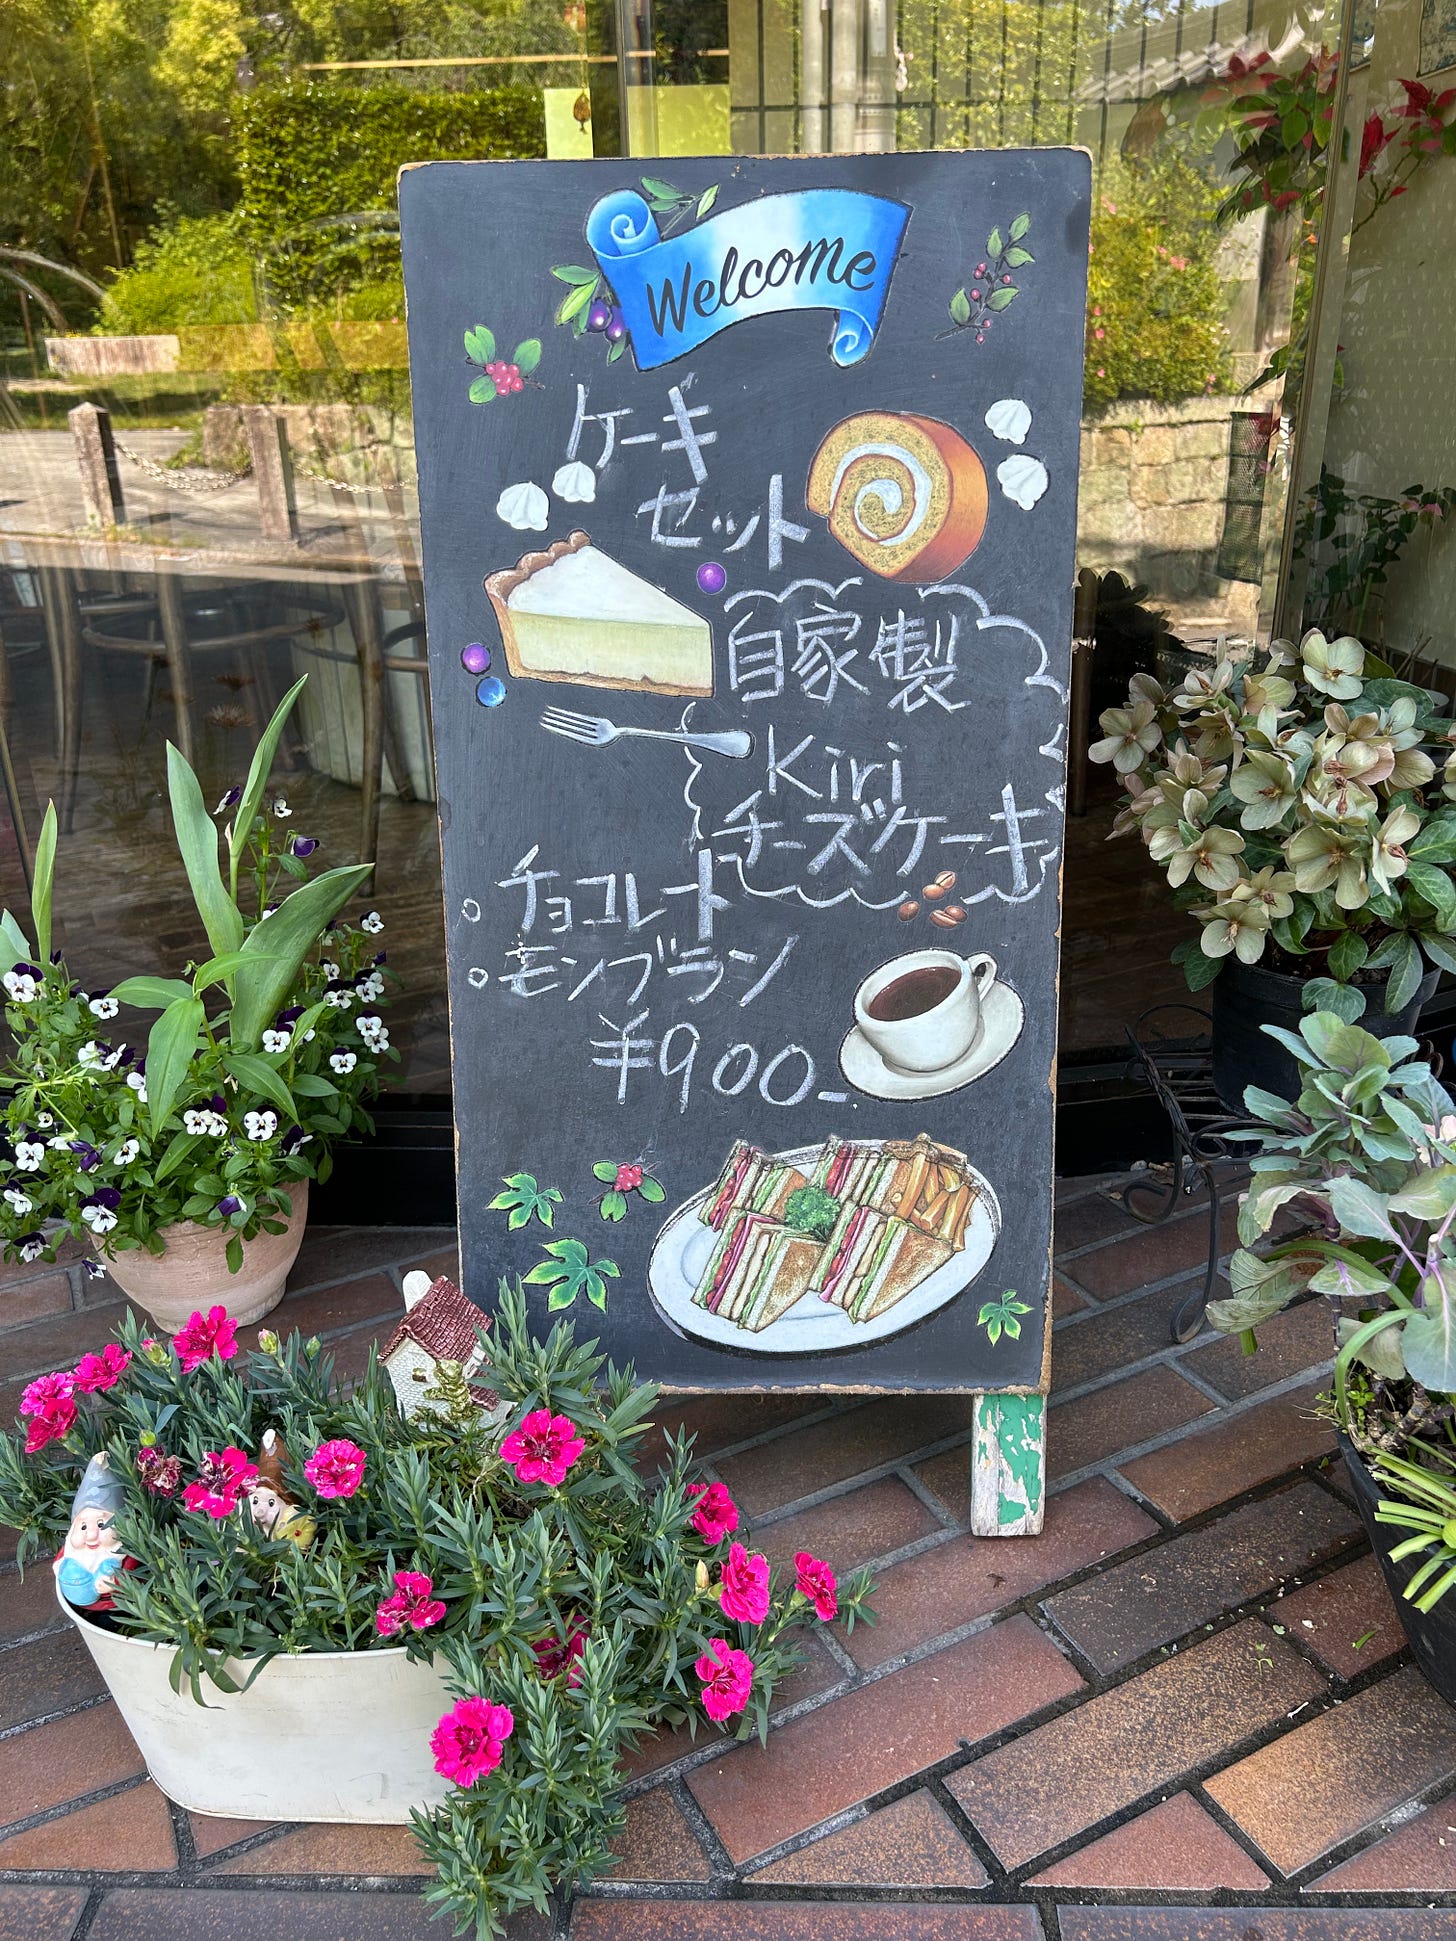 Welcome
ケーキ
セット
自家製
Kiri
チーズケーキ
チョコレート
モンブラン
¥900-